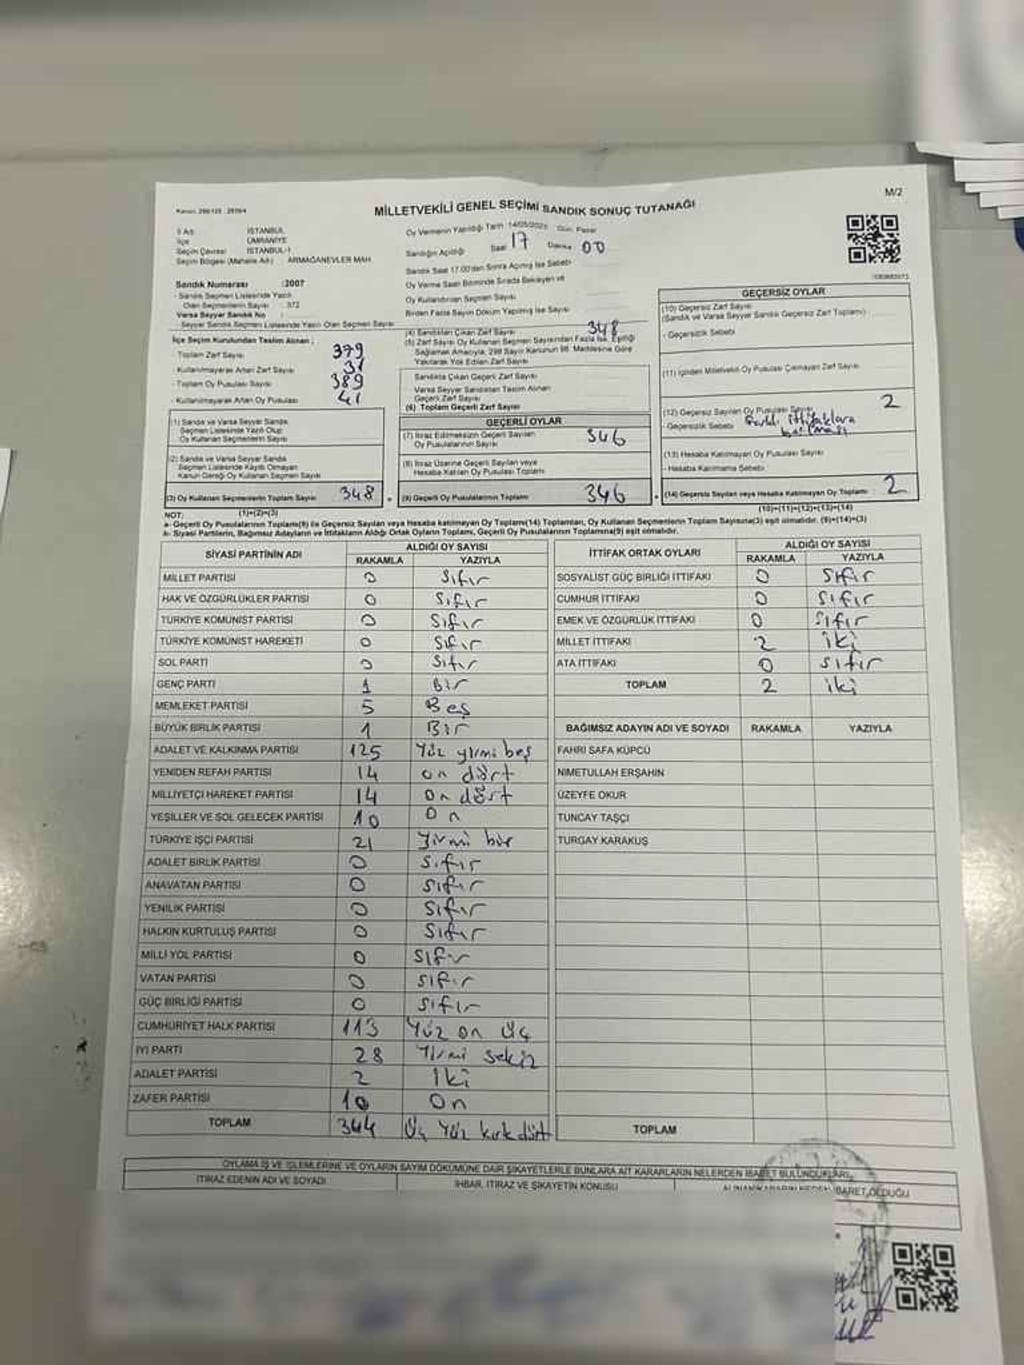 M/2
MİLLETVEKİLİ GENEL SEÇİMİ SANDIK SONUÇ TUTANAĞI
İl Adı : İSTANBUL
İlçe : ÜMRANİYE
Seçim Çevresi : İSTANBUL-1
Seçim Bölgesi (Mahalle Adı) : ARMAĞANEVLER MAH.
Sandık Numarası :2007
- Sandık Seçmen Listesinde Yazılı
Olan Seçmenlerin Sayısı : 372
Varsa Seyyar Sandık No :
Seyyar Sandık Seçmen Listesinde Yazılı Olan Seçmen Sayısı
İlçe Seçim Kurulundan Teslim Alınan ;
- Toplam Zarf Sayısı 379
- Kullanılmayarak Artan Zarf Sayısı 31
- Toplam Oy Pusulası Sayısı 389
- Kullanılmayarak Artan Oy Pusulası 41
(1) Sandık ve Varsa Seyyar Sandık
Seçmen Listesinde Yazılı Olup
Oy Kullanan Seçmenlerin Sayısı
(2) Sandık ve Varsa Seyyar Sandık
Seçmen Listesinde Kayıtlı Olmayan
Kanun Gereği Oy Kullanan Seçmen Sayısı
(3) Oy Kullanan Seçmenlerin Toplam Sayısı 348
(1)+(2)=(3)
Oy Vermenin Yapıldığı Tarih 14/05/2023 Gün: Pazar
Sandığın Açıldığı Saat 17 Dakika 00
Sandık Saat 17.00'dan Sonra Açılmış İse Sebebi
Oy Verme Saati Bitiminde Sırada Bekleyen ve
Oy Kullandırılan Seçmen Sayısı
Birden Fazla Sayım Döküm Yapılmış İse Sayısı
(4) Sandıktan Çıkan Zarf Sayısı 348
(5) Zarf Sayısı Oy Kullanan Seçmen Sayısından Fazla İse, Eşitliği
Sağlamak Amacıyla, 298 Sayılı Kanunun 98. Maddesine Göre
Yakılarak Yok Edilen Zarf Sayısı
Sandıkta Çıkan Geçerli Zarf Sayısı
Varsa Seyyar Sandıktan Teslim Alınan
Geçerli Zarf Sayısı
(6) Toplam Geçerli Zarf Sayısı
GEÇERLİ OYLAR
(7) İtiraz Edilmeksizin Geçerli Sayılan
Oy Pusulalarının Sayısı 346
(8) İtiraz Üzerine Geçerli Sayılan veya
Hesaba Katılan Oy Pusulası Toplamı
(9) Geçerli Oy Pusulalarının Toplamı 346
GEÇERSİZ OYLAR
(10) Geçersiz Zarf Sayısı
(Sandık ve Varsa Seyyar Sandık Geçersiz Zarf Toplamı)
- Geçersizlik Sebebi
(11) İçinden Milletvekili Oy Pusulası Çıkmayan Zarf Sayısı
(12) Geçersiz Sayılan Oy Pusulası Sayısı 2
- Geçersizlik Sebebi ittifaklara
(13) Hesaba Katılmayan Oy Pusulası Sayısı
- Hesaba Katılmama Sebebi
(14) Geçersiz Sayılan veya Hesaba Katılmayan Oy Toplamı : 2
(10)+(11)+(12)+(13)=(14)
NOT:
a- Geçerli Oy Pusulalarının Toplamı(9) ile Geçersiz Sayılan veya Hesaba katılmayan Oy Toplamı(14) Toplamları, Oy Kullanan Seçmenlerin Toplam Sayısına(3) eşit olmalıdır. (9)+(14)=(3)
b- Siyasi Partilerin, Bağımsız Adayların ve İttifakların Aldığı Ortak Oyların Toplamı, Geçerli Oy Pusulalarının Toplamına(9) eşit olmalıdır.
SİYASİ PARTİNİN ADI ALDIĞI OY SAYISI
RAKAMLA YAZIYLA
MİLLET PARTİSİ 0 Sıfır
HAK VE ÖZGÜRLÜKLER PARTİSİ 0 Sıfır
TÜRKİYE KOMÜNİST PARTİSİ 0 Sıfır
TÜRKİYE KOMÜNİST HAREKETİ 0 Sıfır
SOL PARTİ 0 Sıfır
GENÇ PARTİ 1 Bir
MEMLEKET PARTİSİ 5 Beş
BÜYÜK BİRLİK PARTİSİ 1 Bir
ADALET VE KALKINMA PARTİSİ 125 Yüz yirmi beş
YENİDEN REFAH PARTİSİ 14 on dört
MİLLİYETÇİ HAREKET PARTİSİ 14 on dört
YEŞİLLER VE SOL GELECEK PARTİSİ 10 On
TÜRKİYE İŞÇİ PARTİSİ 21 Yirmi bir
ADALET BİRLİK PARTİSİ 0 Sıfır
ANAVATAN PARTİSİ 0 Sıfır
YENİLİK PARTİSİ 0 Sıfır
HALKIN KURTULUŞ PARTİSİ 0 Sıfır
MİLLİ YOL PARTİSİ 0 Sıfır
VATAN PARTİSİ 0 Sıfır
GÜÇ BİRLİĞİ PARTİSİ 0 Sıfır
CUMHURİYET HALK PARTİSİ 113 Yüz on üç
İYİ PARTİ 28 Yirmi sekiz
ADALET PARTİSİ 2 İki
ZAFER PARTİSİ 10 On
TOPLAM 344 Üç Yüz kırk dört
İTTİFAK ORTAK OYLARI ALDIĞI OY SAYISI
RAKAMLA YAZIYLA
SOSYALİST GÜÇ BİRLİĞİ İTTİFAKI 0 Sıfır
CUMHUR İTTİFAKI 0 Sıfır
EMEK VE ÖZGÜRLÜK İTTİFAKI 0 Sıfır
MİLLET İTTİFAKI 2 iki
ATA İTTİFAKI 0 Sıfır
TOPLAM 2 iki
BAĞIMSIZ ADAYIN ADI VE SOYADI RAKAMLA YAZIYLA
FAHRİ SAFA KÜPCÜ
NİMETULLAH ERŞAHİN
ÜZEYFE OKUR
TUNCAY TAŞÇI
TURGAY KARAKUŞ
TOPLAM
OYLAMA İŞ VE İŞLEMLERİNE VE OYLARIN SAYIM DÖKÜMÜNE DAİR ŞİKAYETLERLE BUNLARA AİT KARARLARIN NELERDEN İBARET BULUNDUKLARI,
İTİRAZ EDENİN ADI VE SOYADI İHBAR, İTİRAZ VE ŞİKAYETİN KONUSU ALINAN KARARIN NEDEN İBARET OLDUĞU